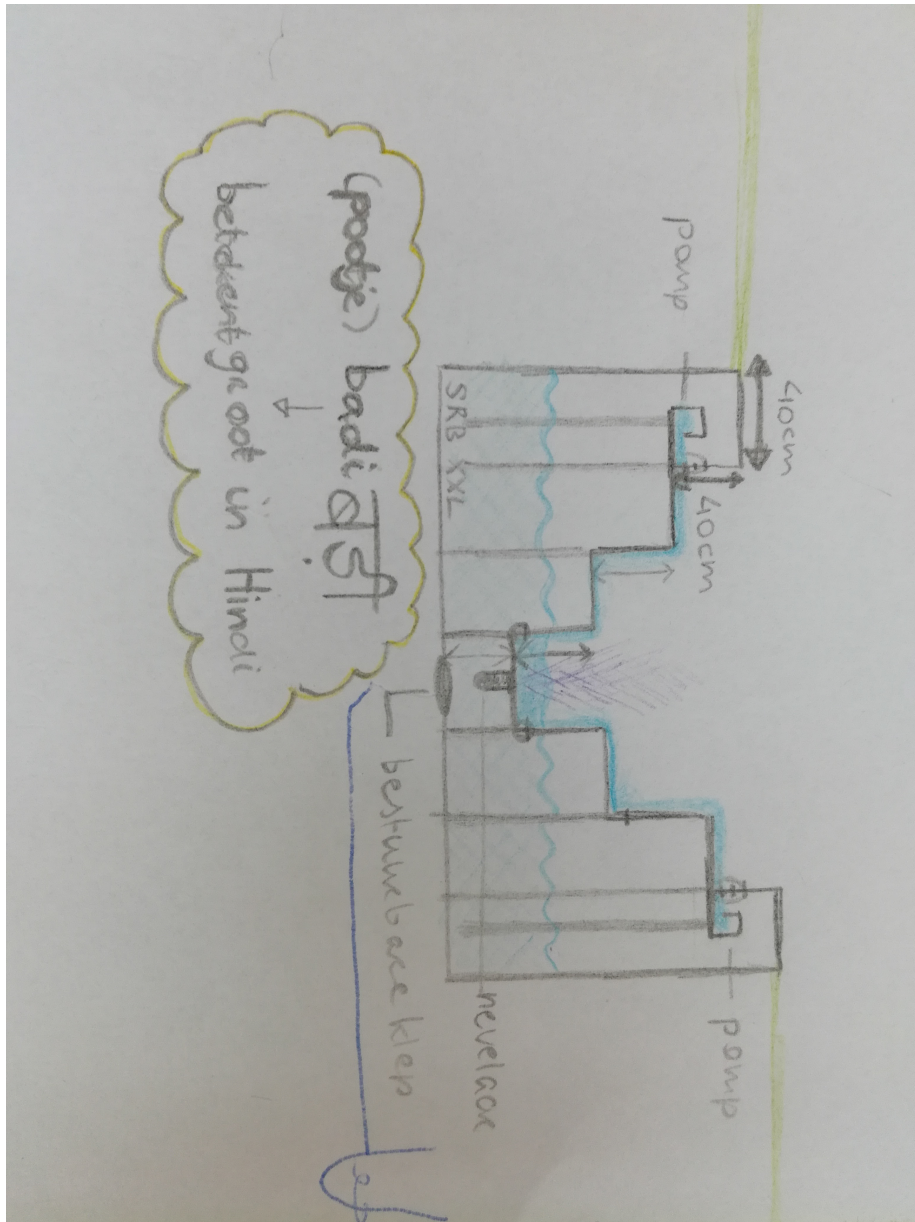 40cm
40cm
pomp
pomp
SRB XXL
nevelaar
bestuurbare klep
(pootje) badi बड़ी
betekent groot in Hindi